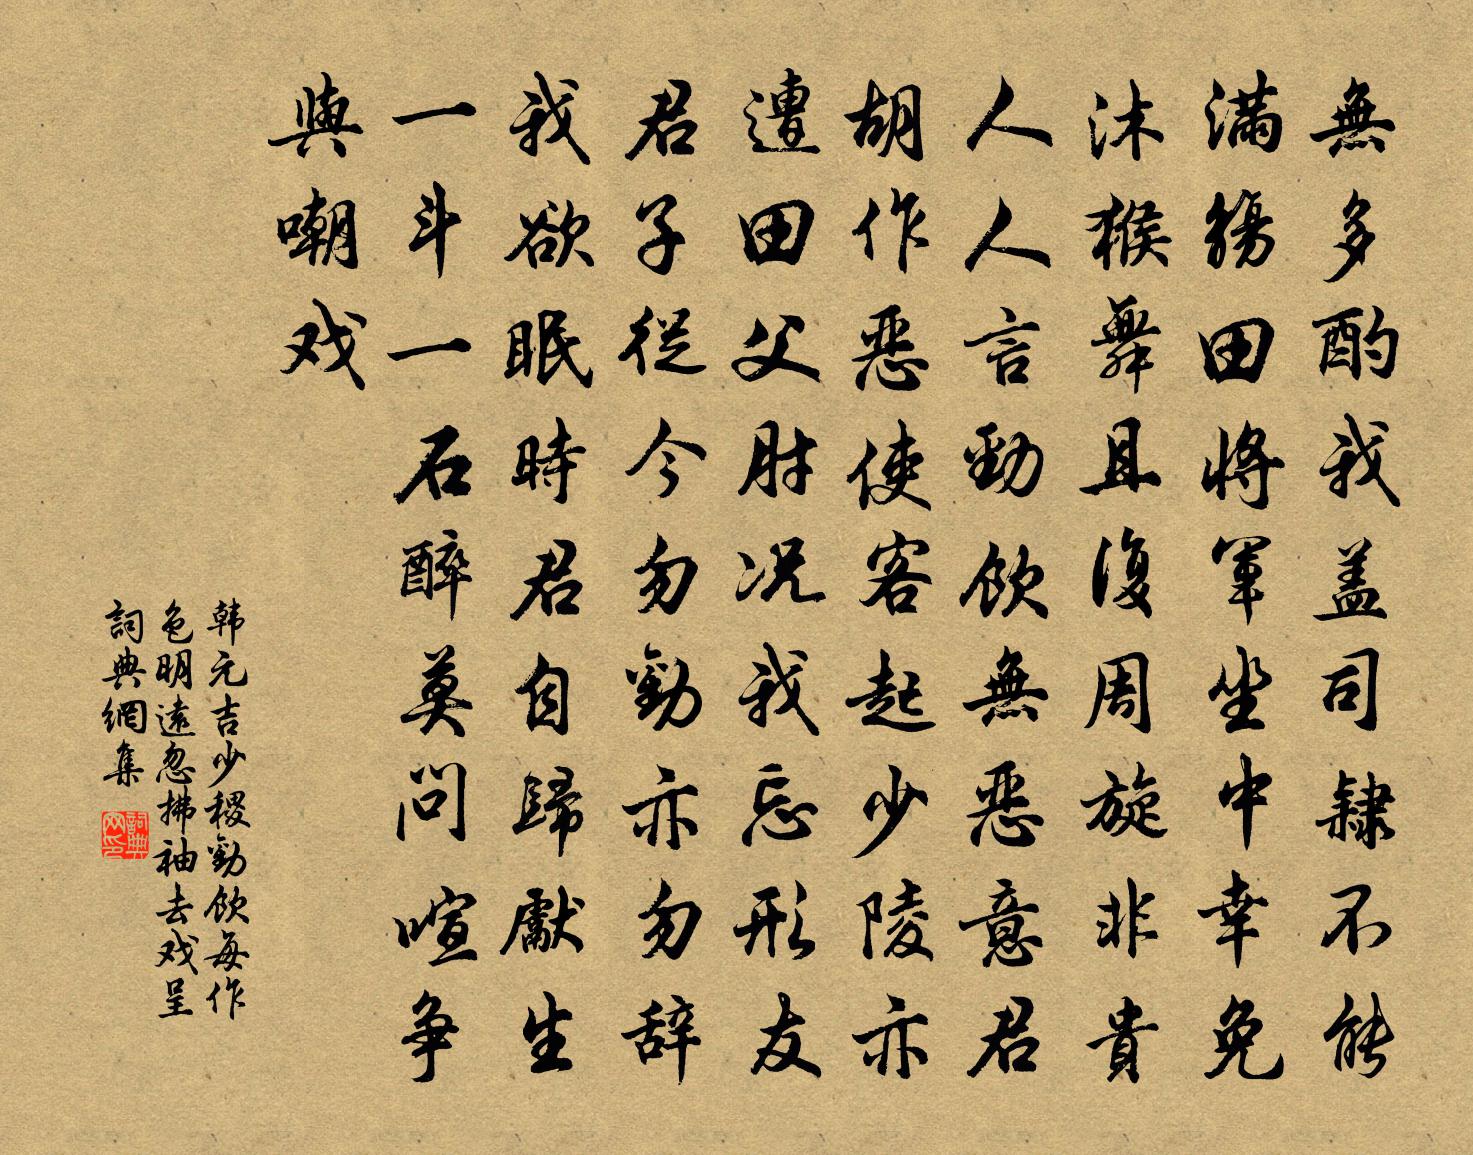 無多酌我盖司隸不能
滿觴田將軍坐中幸免
沐猴舞且復周旋非貴
人人言勁飲無惡意君
胡作惡使客起少陵亦
遭田父肘况我忘形友
君子從今勿勸亦勿辞
我欲眠時君自歸獻生
一斗一石醉莫問喧争
與嘲戏
韩元吉少稷勸飲每作
色明遠忽拂袖去戏呈
詞典網集